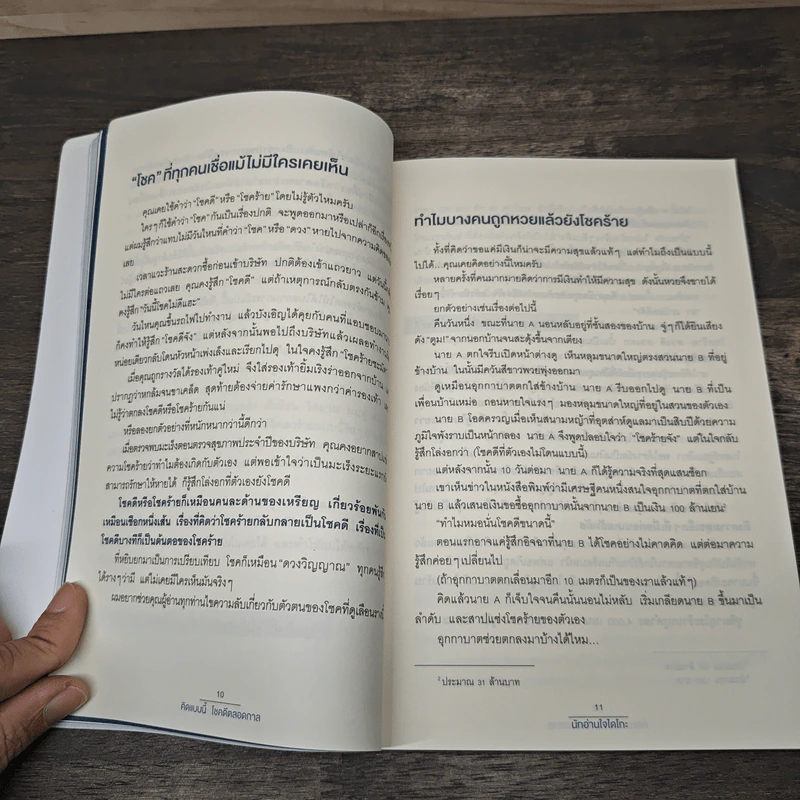 "โชค" ที่ทุกคนเชื่อแม้ไม่มีใครเคยเห็น
คุณเคยใช้คำว่า "โชคดี" หรือ "โชคร้าย" โดยไม่รู้ตัวไหมครับ
ใครๆ ก็ใช้คำว่า "โชค" กันเป็นเรื่องปกติ จะพูดออกมาหรือเปล่าก็อีกเรื่อง
แต่ผมรู้สึกว่าแทบไม่มีวันไหนที่คำว่า "โชค" หรือ "ดวง" หายไปจากความคิดของ
เลย
เวลาแวะร้านสะดวกซื้อก่อนเข้าบริษัท ปกติต้องเข้าแถวยาว แต่วันนี้
ไม่มีใครต่อแถวเลย คุณคงรู้สึก "โชคดี" แต่ถ้าเหตุการณ์กลับตรงกันข้าม
คงรู้สึก "วันนี้โชคไม่ดีแฮะ"
วันไหนคุณขึ้นรถไฟไปทำงาน แล้วบังเอิญได้คุยกับคนที่แอบชอบ
ก็คงทำให้รู้สึก "โชคดีจัง" แต่หลังจากนั้นพอไปถึงบริษัทแล้วเผลอทำงาน
หน่อยเดียวกลับโดนหัวหน้าเพ่งเล็งและเรียกไปดุ ในใจคงรู้สึก "โชคร้าย
เมื่อคุณถูกรางวัลได้รองเท้าคู่ใหม่ จึงใส่รองเท้ายิ้มเริงร่าออกจากบ้าน
ปรากฏว่าหกล้มจนขาเคล็ด สุดท้ายต้องจ่ายค่ารักษาแพงกว่าค่ารองเท้า
ไม่รู้ว่าตกลงโชคดีหรือโชคร้ายกันแน่
หรือลองยกตัวอย่างที่หนักหนากว่านี้ดีกว่า
เมื่อตรวจพบมะเร็งตอนตรวจสุขภาพประจำปีของบริษัท คุณคงอยาก
ความโชคร้ายว่าทำไมต้องเกิดกับตัวเอง แต่พอเข้าใจว่าเป็นมะเร็งระยะแรก
สามารถรักษาให้หายได้ ก็รู้สึกโล่งอกที่ตัวเองยังโชคดี
โชคดีหรือโชคร้ายก็เหมือนคนละด้านของเหรียญ เกี่ยวร้อยพัน
เหมือนเชือกหนึ่งเส้น เรื่องที่คิดว่าโชคร้ายกลับกลายเป็นโชคดี เรื่องที่
โชคดีบางทีก็เป็นต้นตอของโชคร้าย
ที่หยิบยกมาเป็นการเปรียบเทียบ โชคก็เหมือน "ดวงวิญญาณ" ทุกคนรู้สึก
ได้รางๆ ว่ามี แต่ไม่เคยมีใครเห็นมันจริงๆ
ผมอยากช่วยคุณผู้อ่านทุกท่านไขความลับเกี่ยวกับตัวตนของโชคที่ดูเลือนรางนี้
10
คิดแบบนี้ โชคดีตลอดกาล
ทำไมบางคนถูกหวยแล้วยังโชคร้าย
ทั้งที่คิดว่าขอแค่มีเงินก็น่าจะมีความสุขแล้วแท้ๆ แต่ทำไมถึงเป็นแบบนี้
ไปได้...คุณเคยคิดอย่างนี้ไหมครับ
หลายครั้งที่คนมากมายคิดว่าการมีเงินทำให้มีความสุข ดังนั้นหวยจึงขายได้
เรื่อยๆ
ยกตัวอย่างเช่นเรื่องต่อไปนี้
คืนวันหนึ่ง ขณะที่นาย A นอนหลับอยู่ที่ชั้นสองของบ้าน จู่ๆ ก็ได้ยินเสียง
ดัง "ตูม!" จากนอกบ้านจนสะดุ้งขึ้นจากเตียง
นาย A ตกใจรีบเปิดหน้าต่างดู เห็นหลุมขนาดใหญ่ตรงสวนนาย B ที่อยู่
ข้างบ้าน ในนั้นมีควันสีขาวพวยพุ่งออกมา
ดูเหมือนอุกกาบาตตกใส่ข้างบ้าน นาย A รีบออกไปดู นาย B ที่เป็น
เพื่อนบ้านเหม่อ ถอนหายใจแรงๆ มองหลุมขนาดใหญ่ที่อยู่ในสวนของตัวเอง
นาย B โอดครวญเมื่อเห็นสนามหญ้าที่อุตส่าห์ดูแลมาเป็นสิบปีด้วยความ
ภูมิใจพังราบเป็นหน้ากลอง นาย A จึงพูดปลอบใจว่า "โชคร้ายจัง" แต่ในใจกลับ
รู้สึกโล่งอกว่า (โชคดีที่ตัวเองไม่โดนแบบนี้)
แต่หลังจากนั้น 10 วันต่อมา นาย A ก็ได้รู้ความจริงที่สุดแสนช็อก
เขาเห็นข่าวในหนังสือพิมพ์ว่ามีเศรษฐีคนหนึ่งสนใจอุกกาบาตที่ตกใส่บ้าน
นาย B แล้วเสนอเงินขอซื้ออุกกาบาตนั้นจากนาย B เป็นเงิน 100 ล้านเยน²
"ทำไมหมอนั่นโชคดีขนาดนี้"
ตอนแรกอาจแค่รู้สึกอิจฉาที่นาย B ได้โชคอย่างไม่คาดคิด แต่ต่อมาความ
รู้สึกค่อยๆ เปลี่ยนไป
(ถ้าอุกกาบาตตกเลื่อนมาอีก 10 เมตรก็เป็นของเราแล้วแท้ๆ)
คิดแล้วนาย A ก็เจ็บใจจนคืนนั้นนอนไม่หลับ เริ่มเกลียดนาย B ขึ้นมาเป็น
ลำดับ และสาปแช่งโชคร้ายของตัวเอง
อุกกาบาตช่วยตกลงมาบ้างได้ไหม...
² ประมาณ 31 ล้านบาท
11
นักอ่านใจไดโกะ